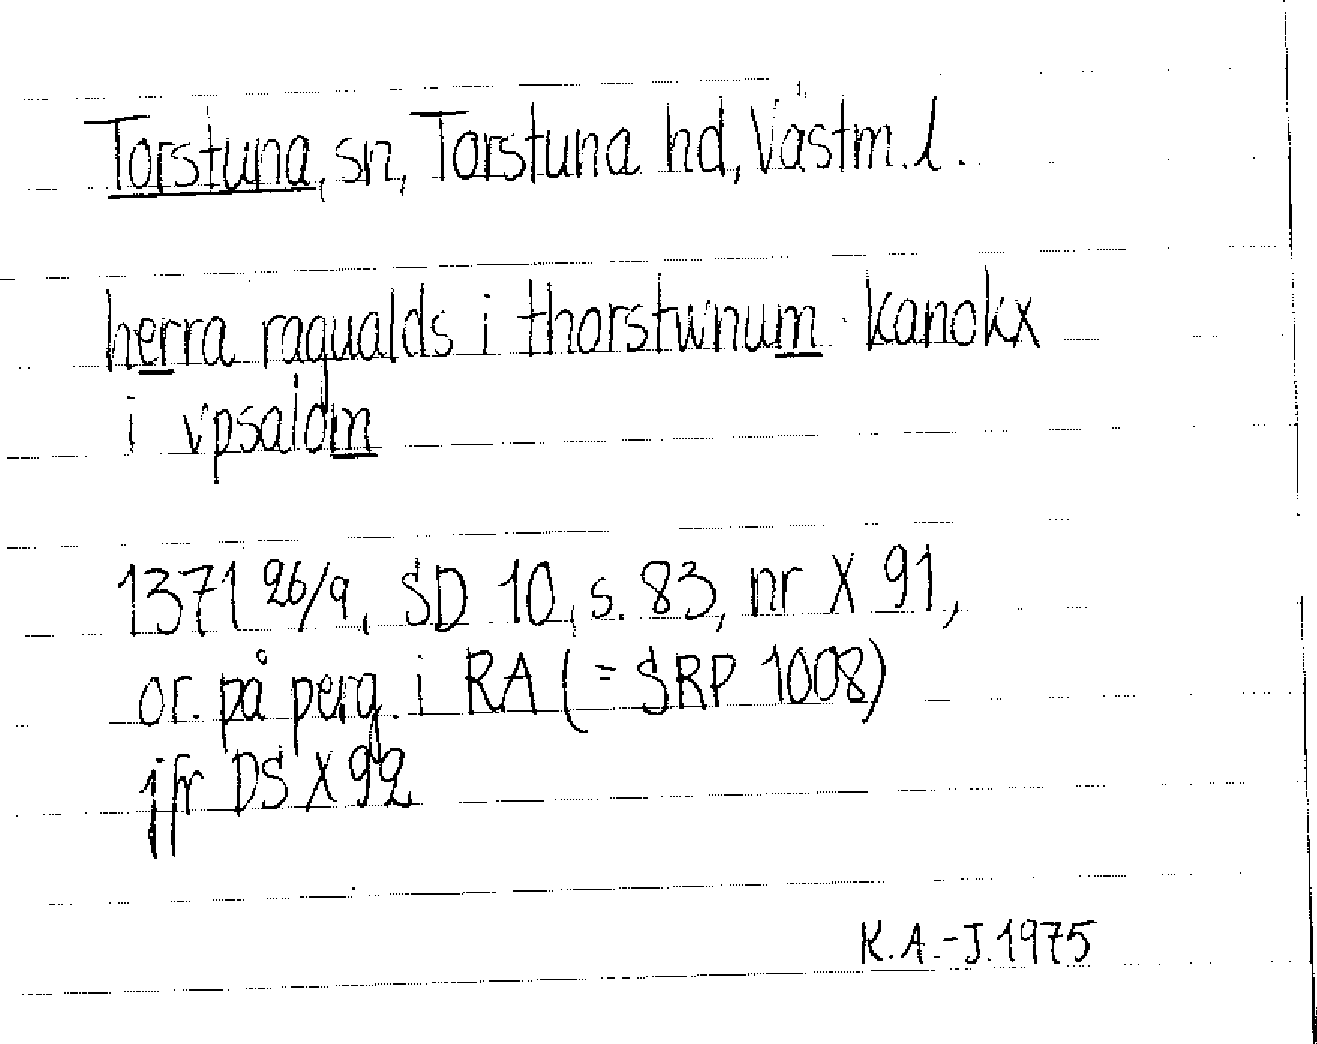 Torstuna, sn, Torstuna hd, Västm. l.
herra ragualds i thorstwnum kanokx
i vpsaldm
1371 26/9, SD 10, s. 83, nr X 91,
or. på perg. i RA (= SRP 1008)
jfr DS X 92
K.A.-J. 1975